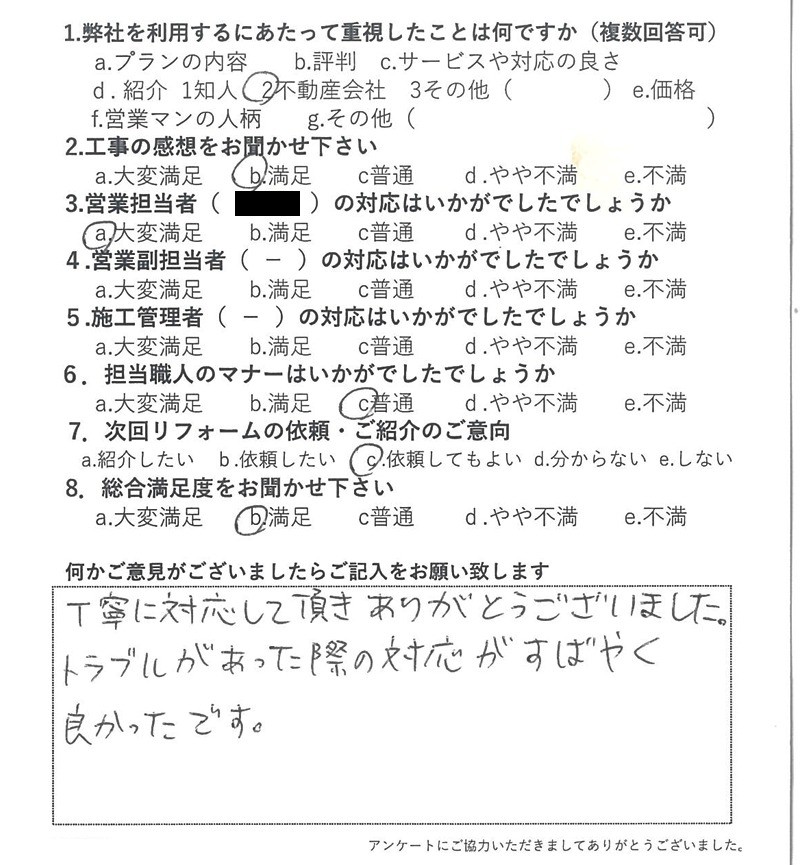 1.弊社を利用するにあたって重視したことは何ですか（複数回答可）
a.プランの内容 b.評判 c.サービスや対応の良さ
d.紹介 1知人 2不動産会社 3その他（ ）e.価格
f.営業マンの人柄 g.その他（ ）
2.工事の感想をお聞かせ下さい
a.大変満足 b.満足 c普通 d.やや不満 e.不満
3.営業担当者（ ）の対応はいかがでしたでしょうか
a.大変満足 b.満足 c普通 d.やや不満 e.不満
4.営業副担当者（ － ）の対応はいかがでしたでしょうか
a.大変満足 b.満足 c普通 d.やや不満 e.不満
5.施工管理者（ － ）の対応はいかがでしたでしょうか
a.大変満足 b.満足 c普通 d.やや不満 e.不満
6．担当職人のマナーはいかがでしたでしょうか
a.大変満足 b.満足 c普通 d.やや不満 e.不満
7．次回リフォームの依頼・ご紹介のご意向
a.紹介したい b.依頼したい c.依頼してもよい d.分からない e.しない
8．総合満足度をお聞かせ下さい
a.大変満足 b.満足 c普通 d.やや不満 e.不満
何かご意見がございましたらご記入をお願い致します
丁寧に対応して頂きありがとうございました。
トラブルがあった際の対応がすばやく
良かったです。
アンケートにご協力いただきましてありがとうございました。